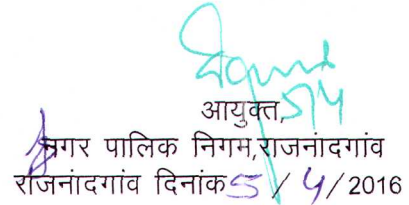 आयुक्त, 5/4
नगर पालिक निगम,राजनांदगांव
राजनांदगांव दिनांक 5 / 4 / 2016